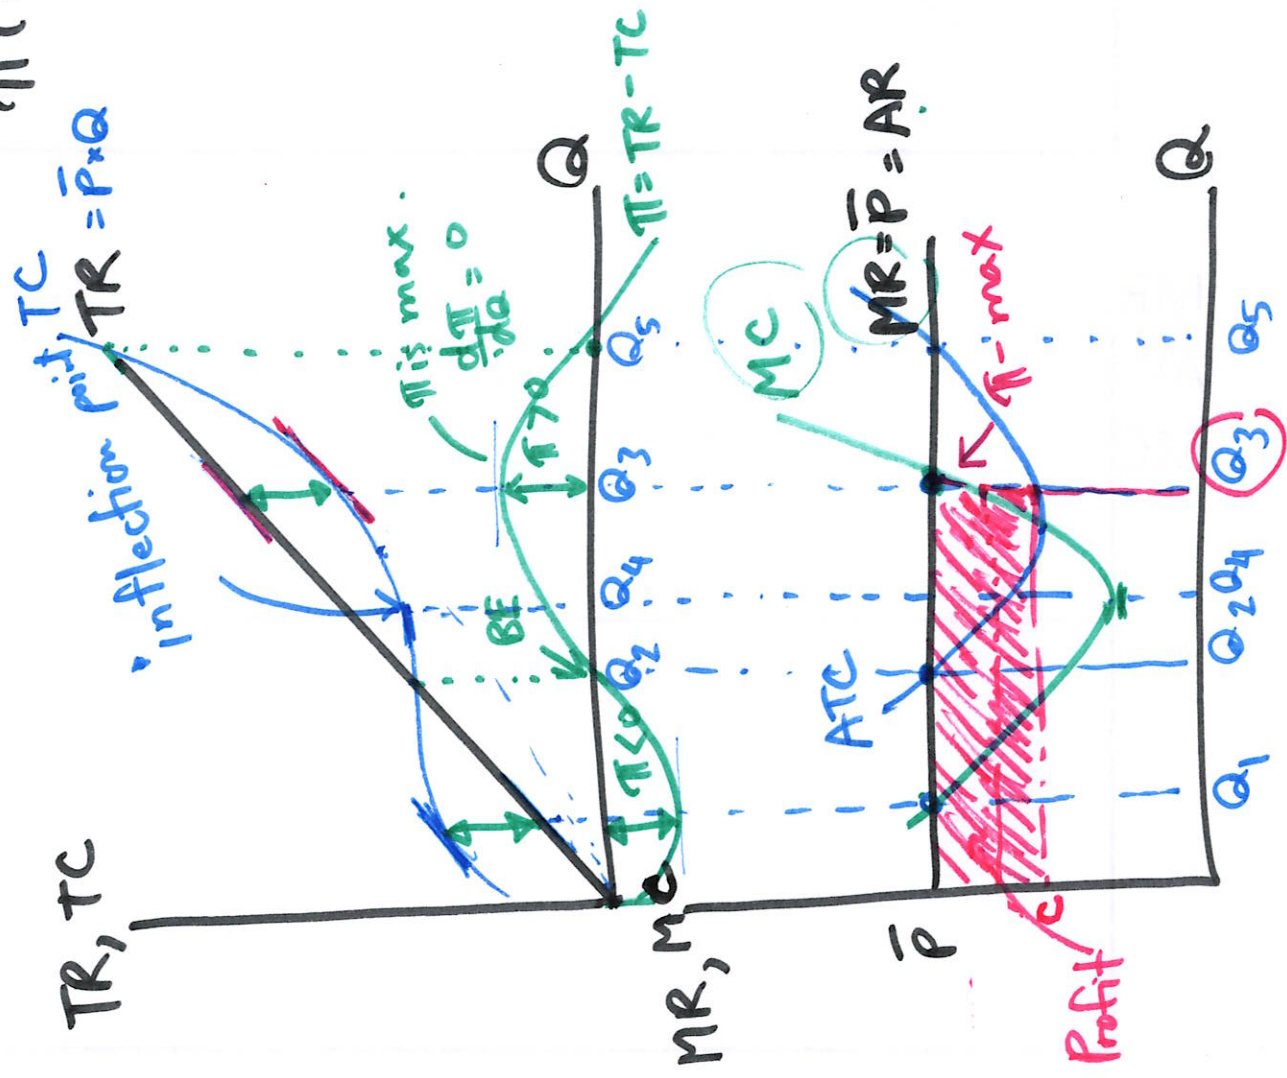 TR, TC
TC
TR = P̄ x Q
Inflection point
π is max.
dπ/dQ = 0
BE
π > 0
π < 0
Q
Q2
Q4
Q3
Q5
π = TR - TC
MR, M
MC
MR = P̄ = AR
ATC
π - max
P̄
C
Profit
Q
Q1
Q2
Q4
Q3
Q5